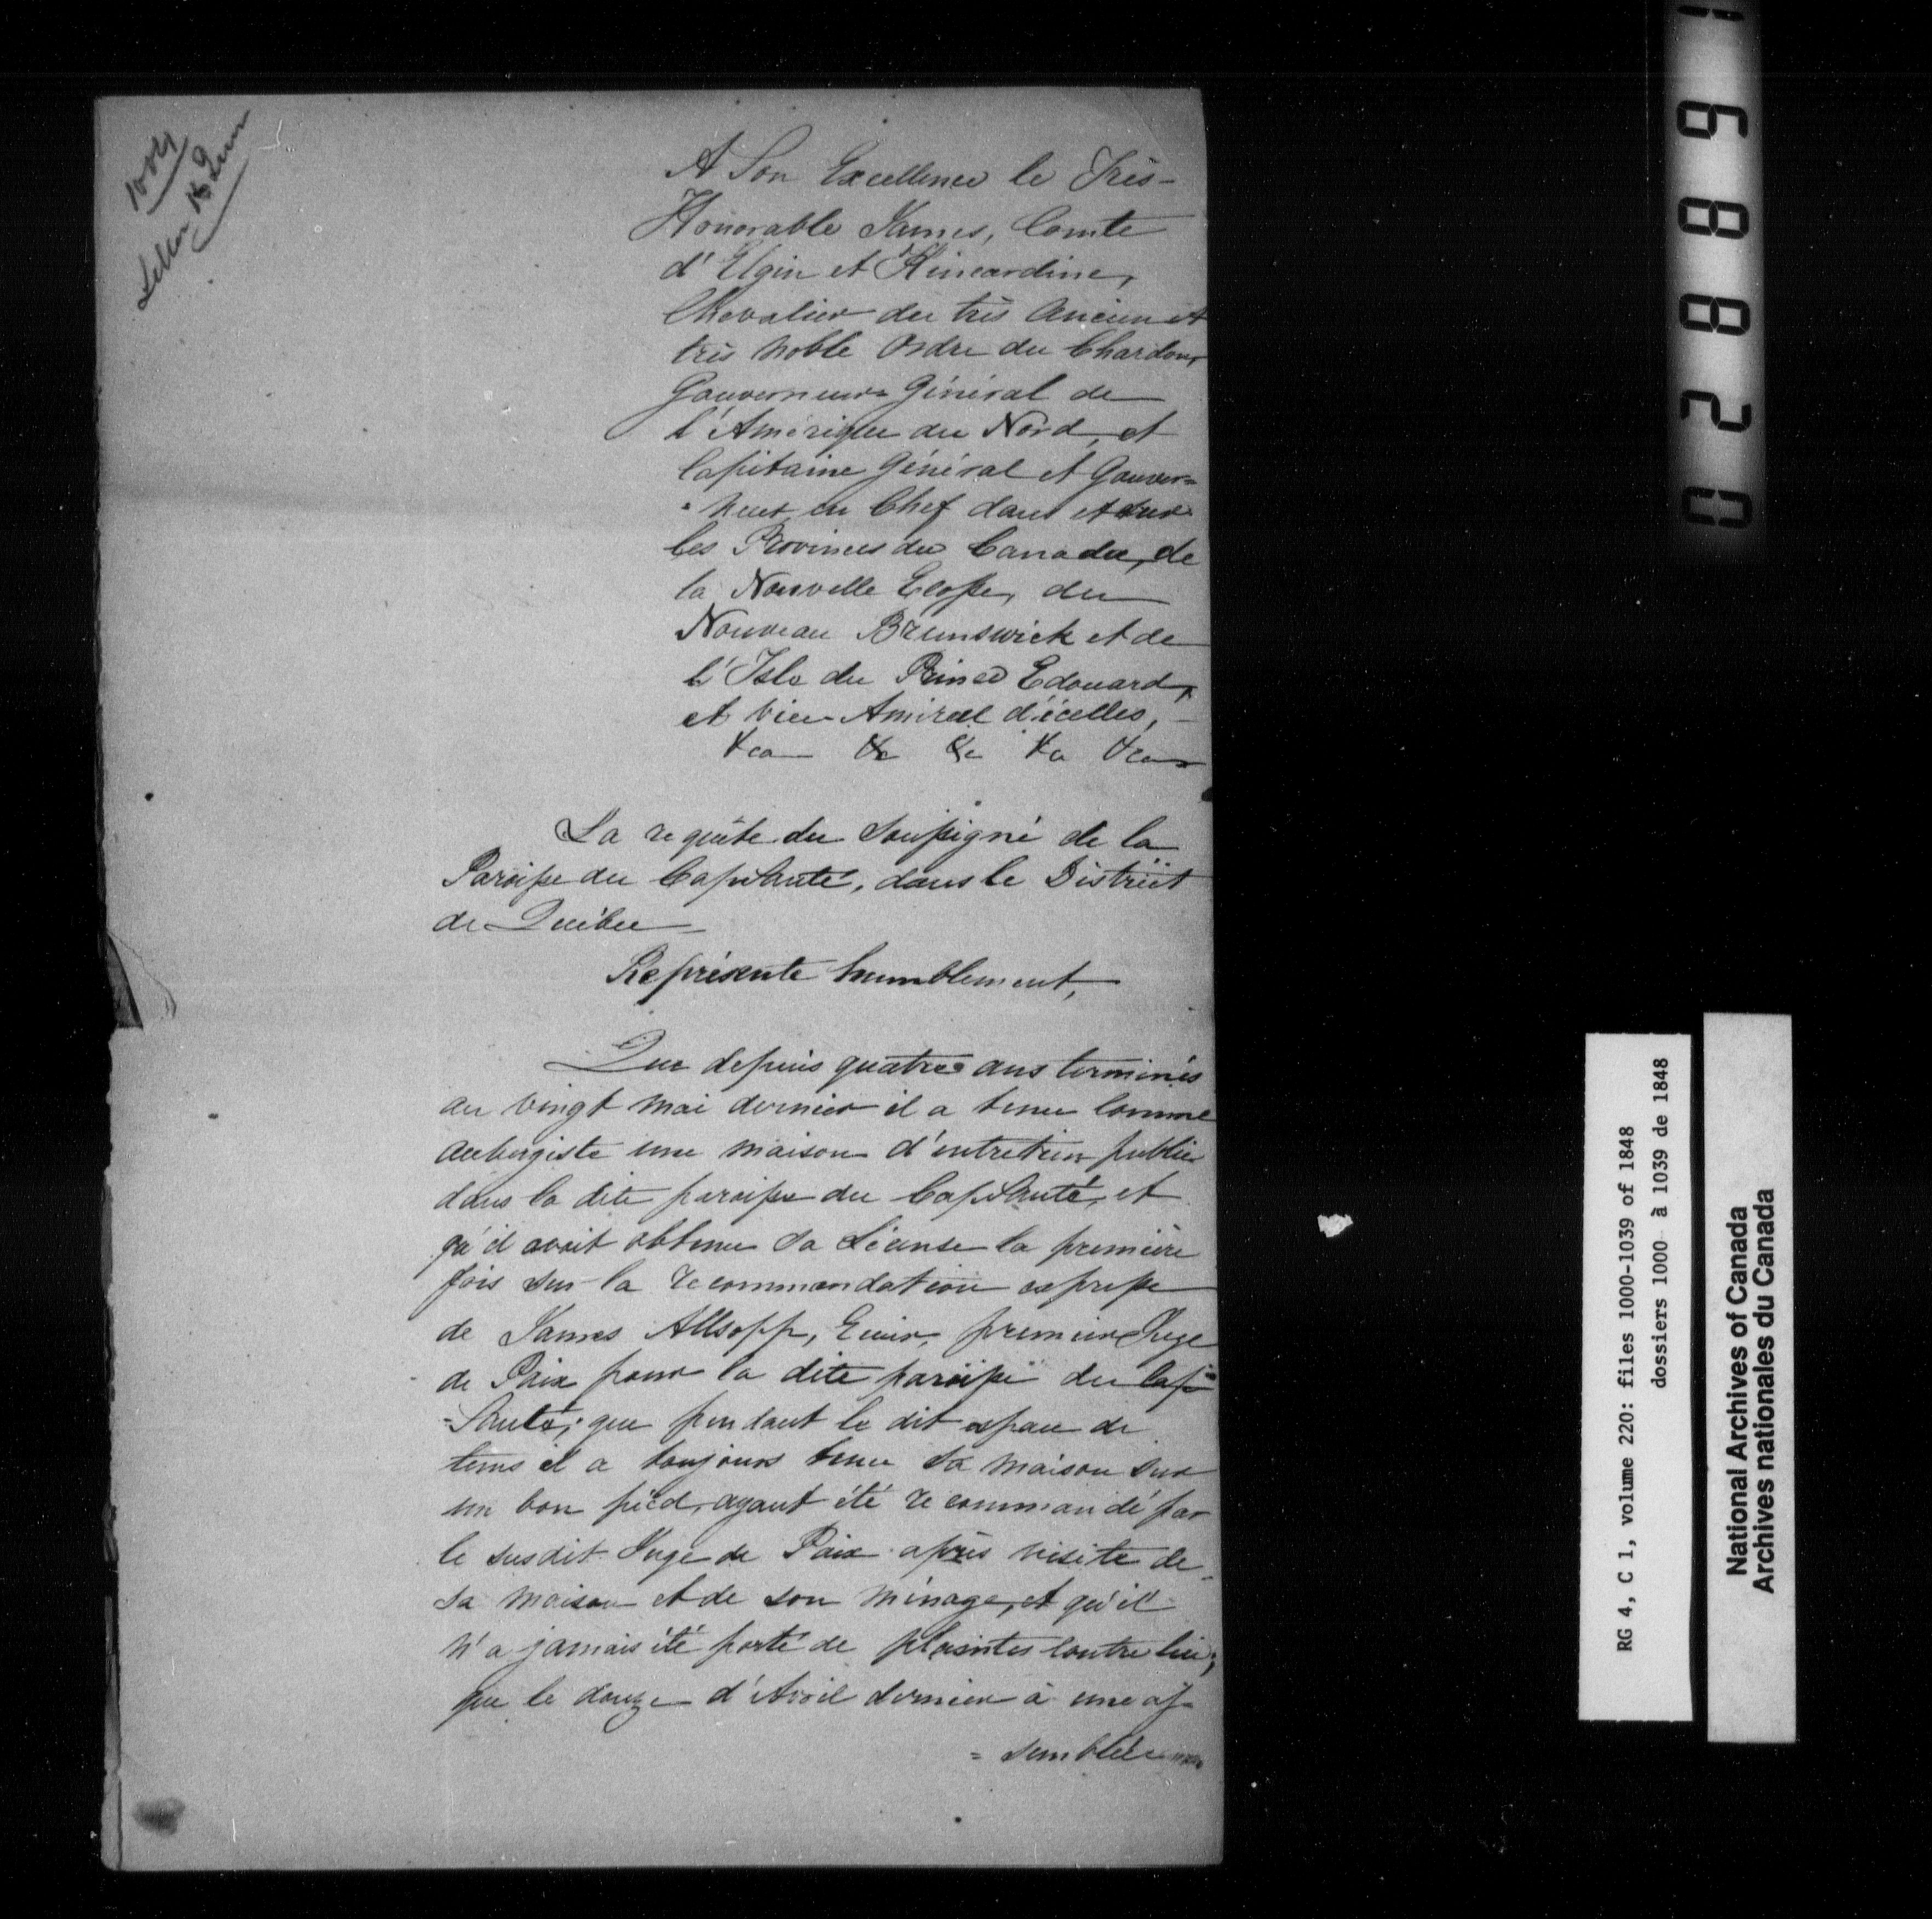 1004
A Son Excellence le Très-
Honorable James, Comte
d'Elgin et Kincardine,
Chevalier du très ancien et
très noble Ordre du Chardon,
Gouverneur Général de
l'Amérique du Nord, et
Capitaine Général et Gouver=
=neur en Chef dans et sur
les Provinces du Canada, de
la Nouvelle Ecosse, du
Nouveau Brunswick et de
l'Isle du Prince Edouard,
et Vice-Amiral d'icelles,
&ca &c &c &a &ca
La requête du Soussigné de la
Paroisse du CapSanté, dans le District
de Québec
Représente humblement,
Que depuis quatre ans terminés
au vingt mai dernier il a tenu comme
aubergiste une maison d'entretien public
dans la dite paroisse du CapSanté, et
qu'il avait obtenu sa Licence la première
fois sur la recommandation expresse
de James Allsopp, Ecuier, premier Juge
de Paix pour la dite paroisse du Cap=
=Santé; que pendant le dit espace de
tems il a toujours tenu sa maison sur
un bon pied, ayant été recommandé par
le susdit Juge de Paix après visite de
sa maison et de son ménage, et qu'il
n'a jamais été porté de plaintes contre lui;
que le douze d'Avril dernier à une as=
=semblée
028891
RG 4, C 1, volume 220: files 1000-1039 of 1848
dossiers 1000 à 1039 de 1848
National Archives of Canada
Archives nationales du Canada